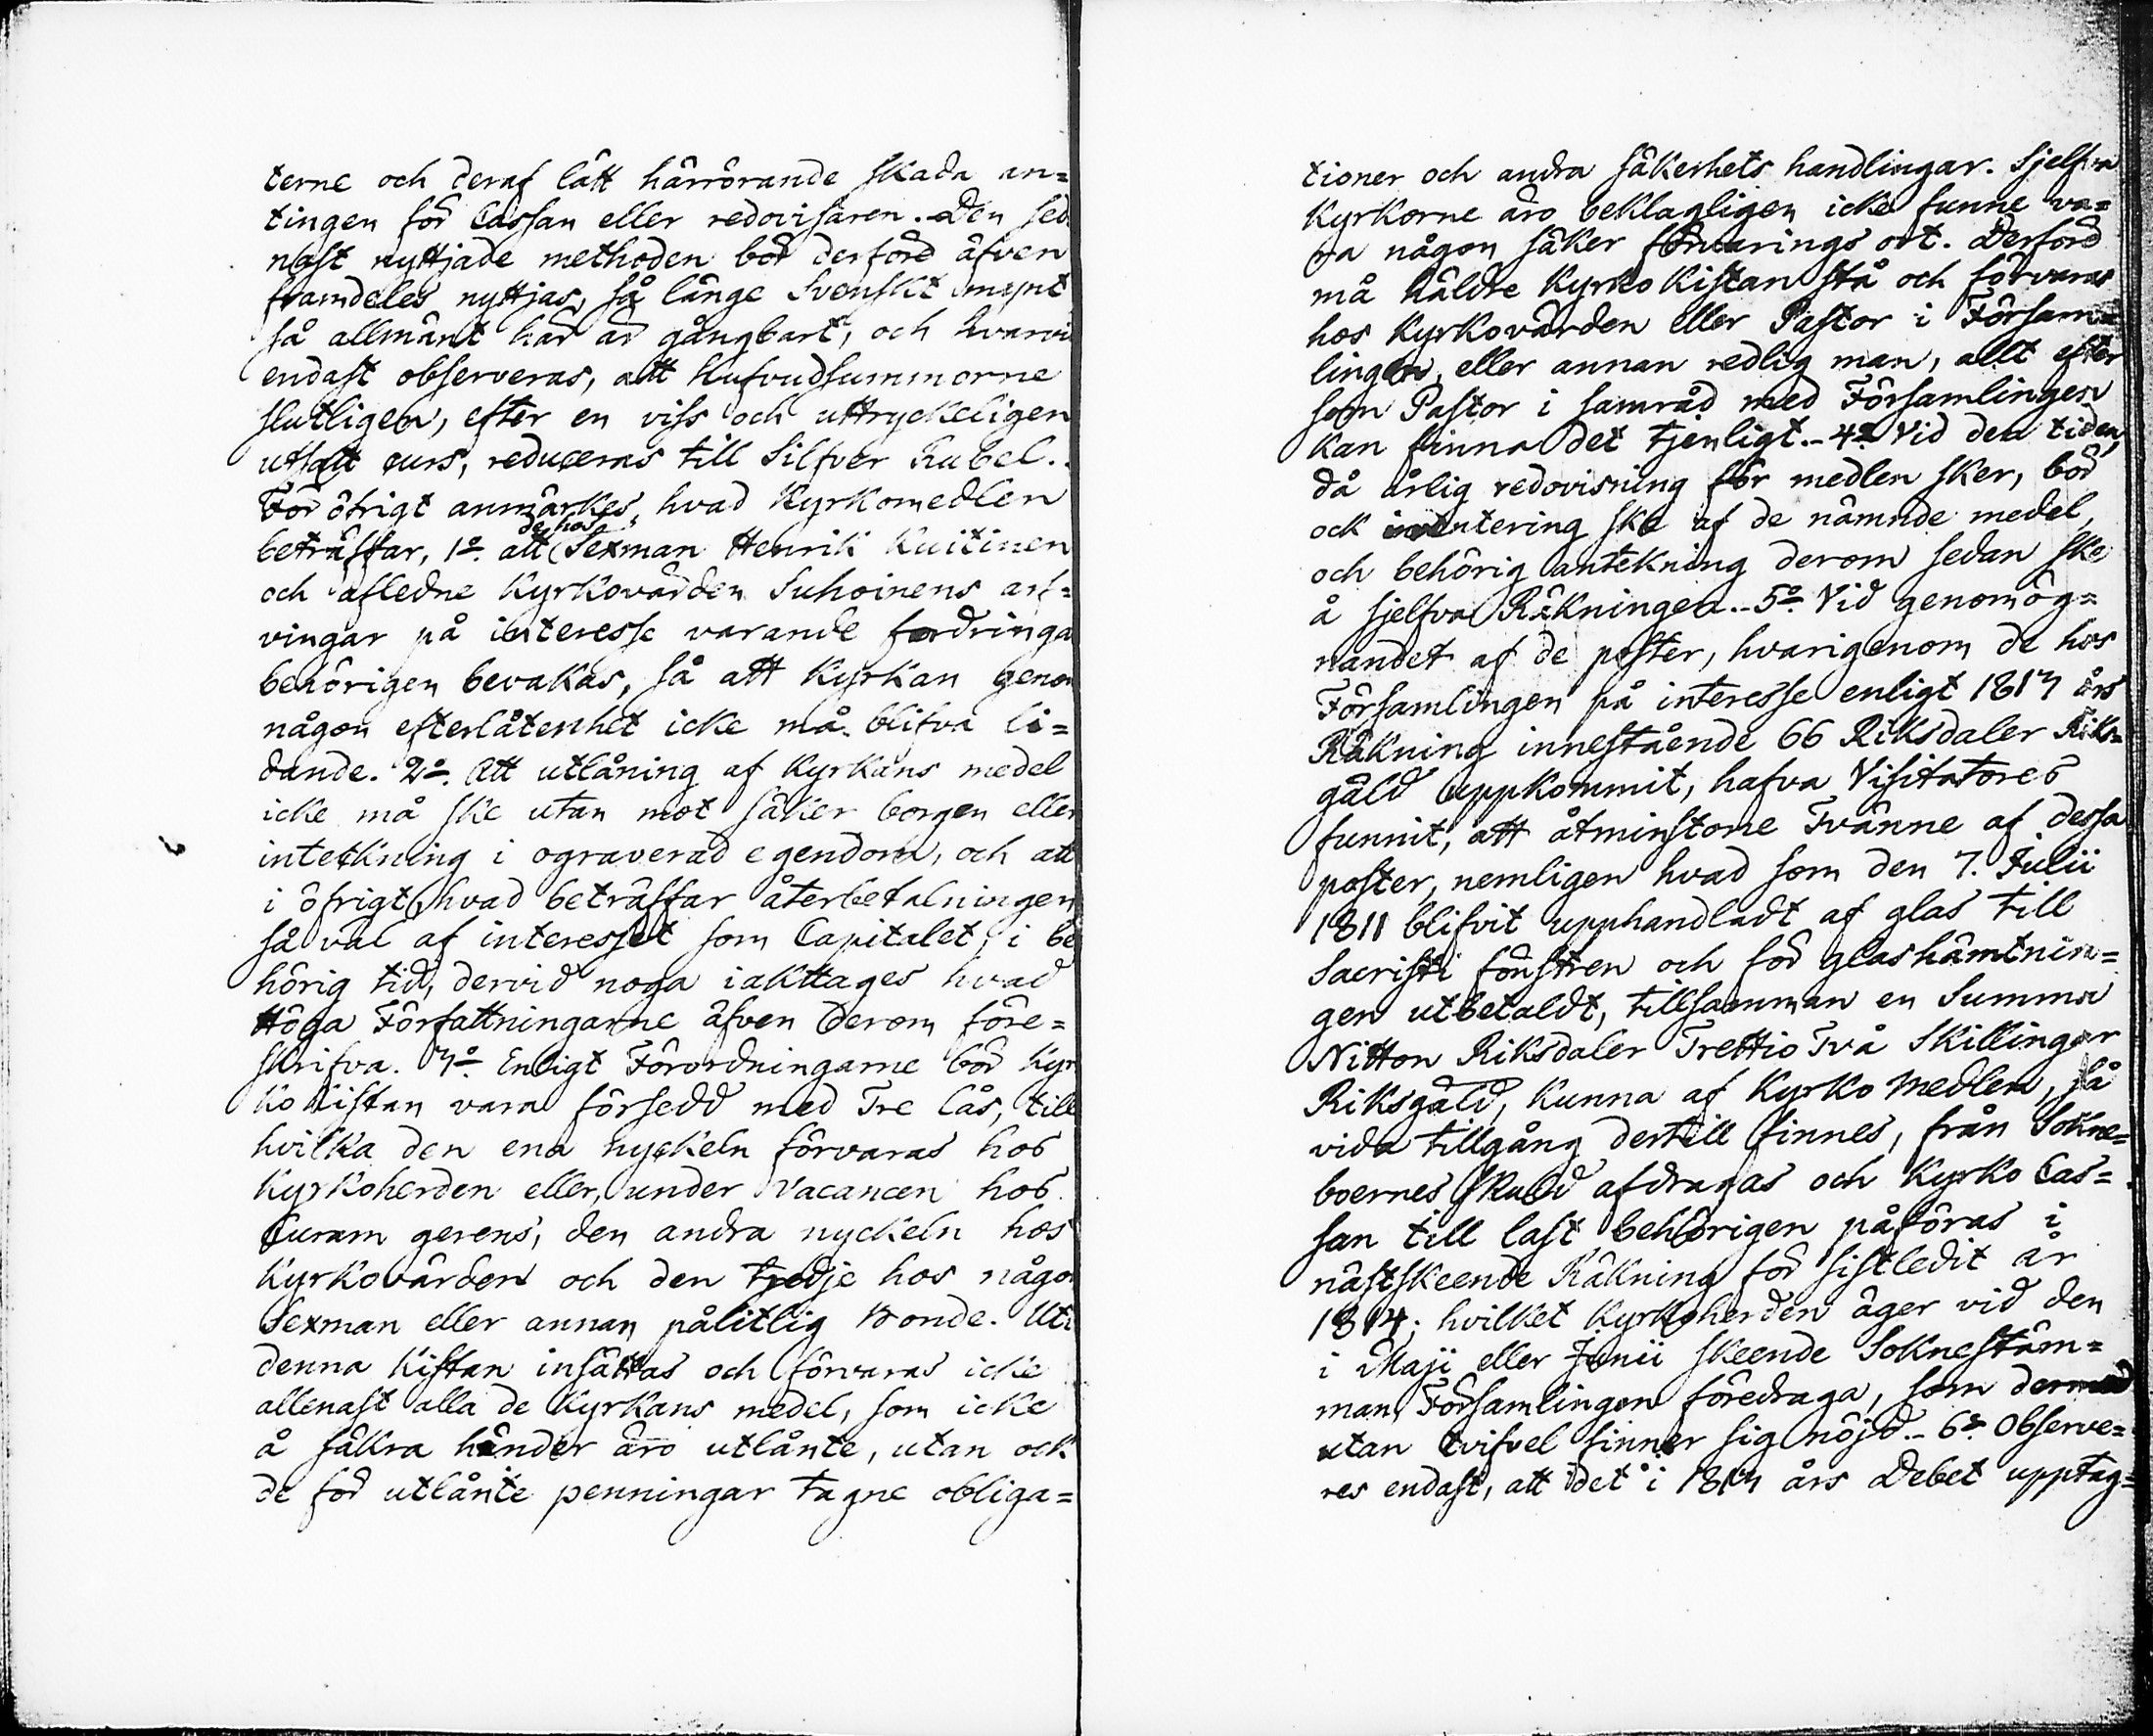 terne och deraf lätt härrörande skada an=
tingen för Cassan eller redovisaren. Den sed
nast nyttjade methoden bör derföre äfven
framdeles nyttjas, så länge Svenskt mynt
så allmänt här är gångbart, och hvarvi
endast observeras, att hufvudsummorne
slutligen, efter en viss och uttryckeligen
utsatt curs, reduceras till Silfver Rubel.
För öfrigt anmärkes, hvad Kyrkomedlen
beträffar, 1o. att de hos Sexman Henrik Kuitinen
och afledne Kyrkovärden Suhoinens arf=
vingar på interesse varande fordringa
behörigen bevakas, så att Kyrkan genom
någon efterlåtenhet icke må blifva li=
dande. 2o. Att utlåning af Kyrkans medel
icke må ske utan mot säker borgen eller
inteckning i ograverad egendom, och att
i öfrigt, hvad beträffar återbetalningen
så väl af interesset som Capitalet, i be
hörig tid, dervid noga iakttages hvad
Höga Författningarne äfven derom före=
skrifva. 3o. Enligt Förordningarne bör Kyr
ko Kistan vara försedd med Tre Lås, till
hvilka den ena nyckeln förvaras hos
Kyrkoherden eller, under Vacancen hos
Curam gerens, den andra nyckeln hos
Kyrkovärden och den tredje hos någo
Sexman eller annan pålitlig Bonde. Uti
denna Kistan insättas och förvaras icke
allenast alla de Kyrkans medel, som icke
å säkra händer äro utlånte, utan ock
de för utlånte penningar tagne obliga=
tioner och andra säkerhets handlingar. Sjelfva
Kyrkorne äro beklagligen icke funne va=
ra någon säker förvarings ort. Derföre
må häldre Kyrko Kistan stå och förvaras
hos Kyrkovärden eller Pastor i Försam=
lingen, eller annan redlig man, allt efter
som Pastor i samråd med Församlingen
kan finna det tjenligt. - 4o. Vid den tiden,
då årlig redovisning för medlen sker, bör
ock inventering ske af de nämnde medel,
och behörig antekning derom sedan ske
å sjelfva Räkningen. - 5o. Vid genomög=
nandet af de poster, hvarigenom de hos
Församlingen på interesse enligt 1813 års
Räkning innestående 66 Riksdaler Riks=
gäld uppkommit, hafva Visitatores
funnit, att åtminstone Tvänne af dessa
poster, nemligen hvad som den 7. Julii
1811 blifvit upphandladt af glas till
Sacristi fönstren och för glashämtnin=
gen utbetaldt, tillsamman en Summa
Nitton Riksdaler Trettio Två Skillingar
Riksgäld, kunna af Kyrko Medlen, så
vida tillgång dertill finnes, från Sokne=
boernes skuld afdragas och Kyrko Cas=
san till last behörigen påföras i
nästskeende Räkning för sistledit år
1814; hvilket Kyrkoherden äger vid den
i Maji eller Junii skeende Soknestäm=
man Församlingen föredraga, som dermed
utan tvifvel finner sig nöjd. - 6o. Observe=
res endast, att det i 1813 års Debet upptag=